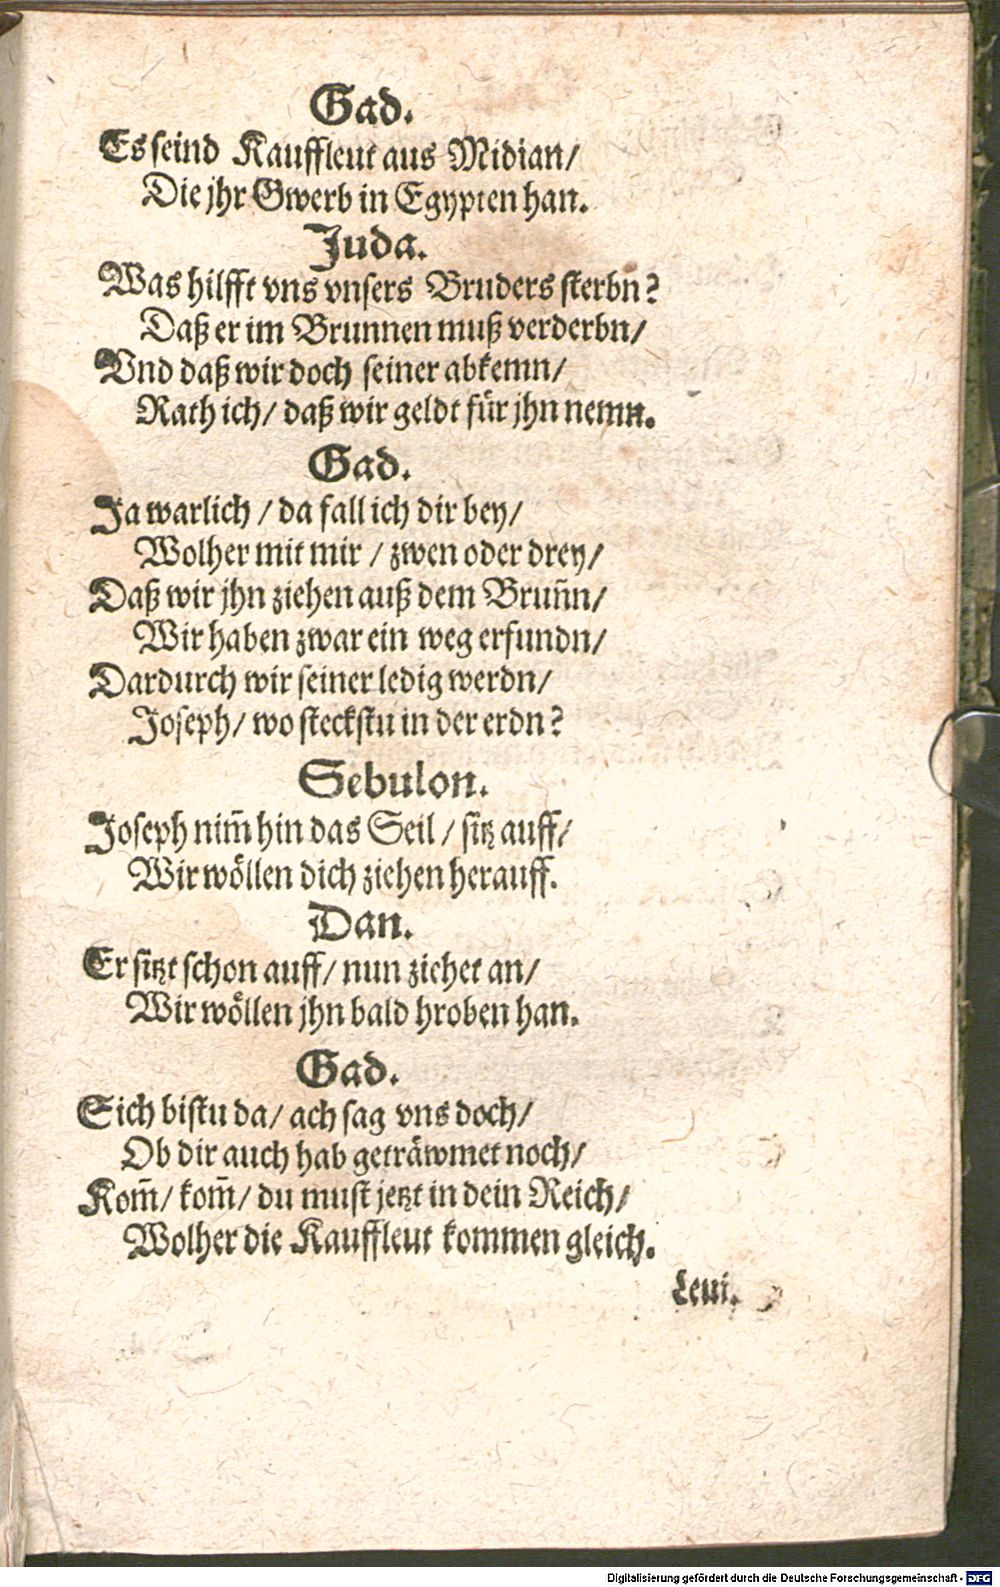 Gad.
Es seind Kauffleut aus Midian/
Die jhr Gwerb in Egypten han.
Juda.
Was hilfft vns vnsers Bruders sterbn?
Daß er im Brunnen muß verderbn/
Vnd daß wir doch seiner abkemn/
Rath ich/ daß wir geldt für jhn nemn.
Gad.
Ja warlich / da fall ich dir bey/
Wolher mit mir / zwen oder drey/
Daß wir jhn ziehen auß dem Bruñn/
Wir haben zwar ein weg erfundn/
Dardurch wir seiner ledig werdn/
Joseph/ wo steckstu in der erdn?
Sebulon.
Joseph nim̃ hin das Seil / sitz auff/
Wir wöllen dich ziehen herauff.
Dan.
Er sitzt schon auff/ nun ziehet an/
Wir wöllen jhn bald hroben han.
Gad.
Sich bistu da/ ach sag vns doch/
Ob dir auch hab geträwmet noch/
Kom̃/ kom̃/ du must jetzt in dein Reich/
Wolher die Kauffleut kommen gleich.
Leui.
Digitalisierung gefördert durch die Deutsche Forschungsgemeinschaft - DFG